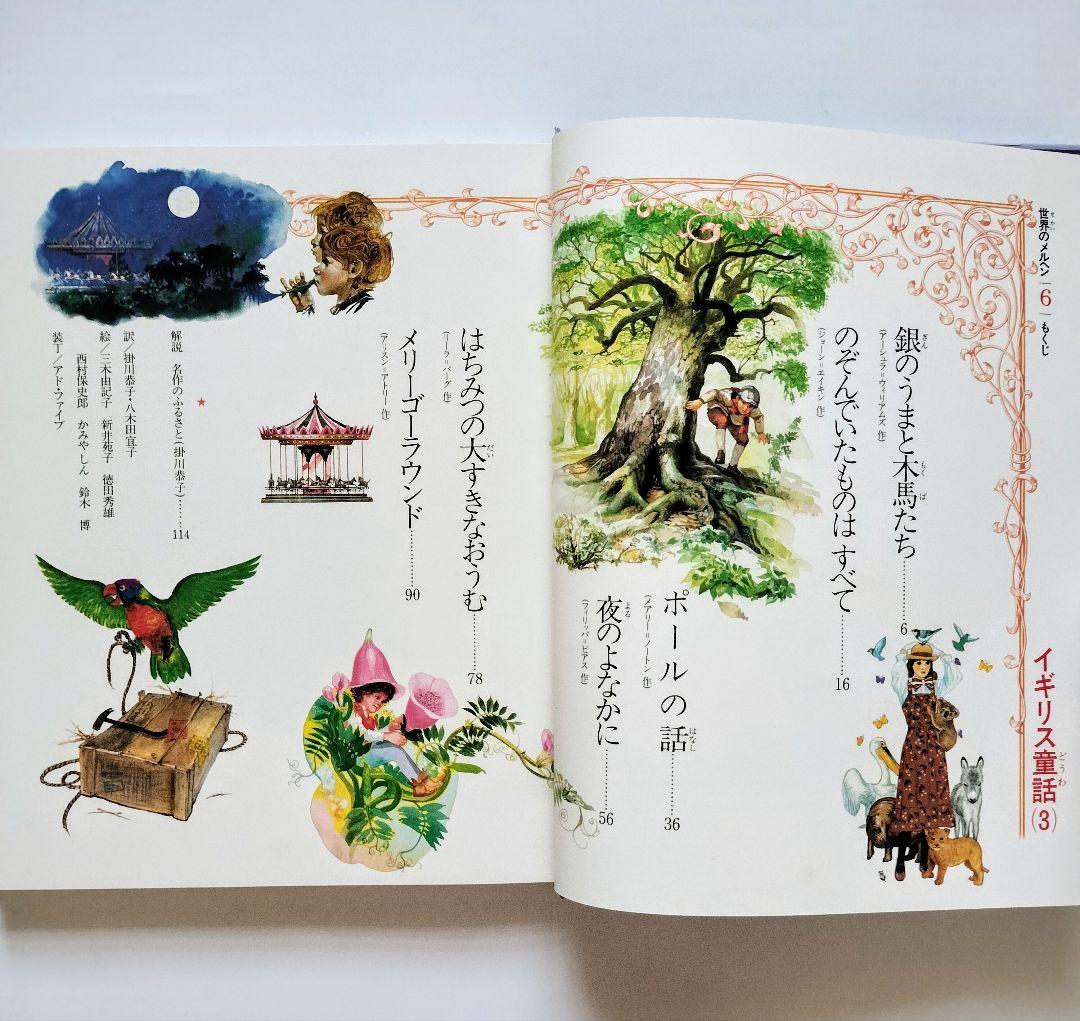 世界のメルヘン 6 もくじ
イギリス童話(3)
銀のうまと木馬たち…………6
(アーシュラ=ウィリアムズ 作)
のぞんでいたものは すべて………16
(ジョーン=エイキン 作)
ポールの話………36
(メアリー=ノートン 作)
夜のよなかに………56
(フィリッパ=ピアス 作)
はちみつの大すきなおうむ………78
(リーラ=バーグ 作)
メリーゴーラウンド…………90
(アリスン=アトリー 作)
★
解説 名作のふるさと(掛川恭子)……114
訳/掛川恭子・八木田宜子
絵/三木由記子 新井苑子 徳田秀雄
西村保史郎 かみや しん 鈴木 博
装丁/アド・ファイブ